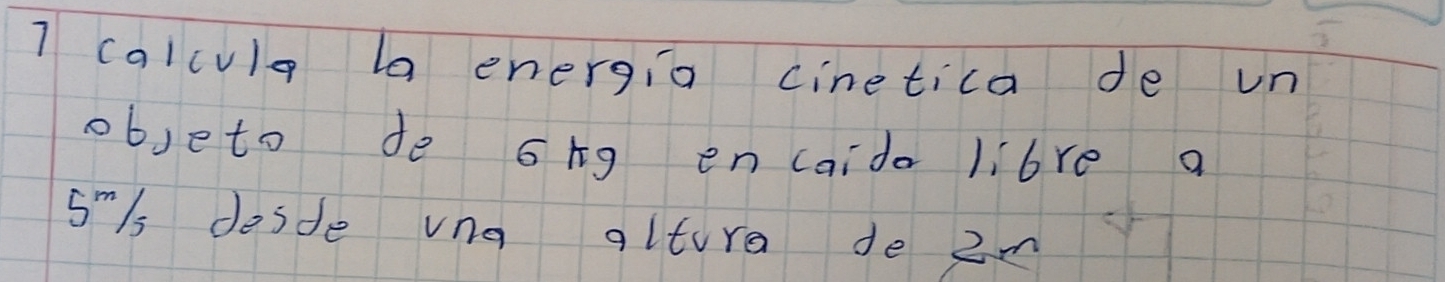 7 calcula la energía cinetica de un
objeto de 6 kg en caida libre a
5 m/s desde una altura de 2m